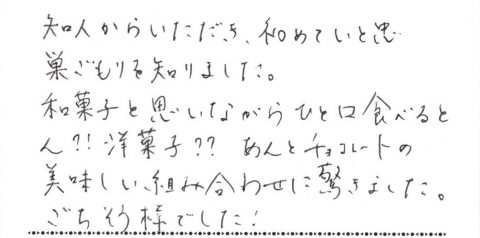 知人からいただき、和めていと思
巣ごもりを知りました。
和菓子と思いながらひと口食べると
ん?!洋菓子?? あんとチョコレートの
美味しい組み合わせに驚きました。
ごちそう様でした!